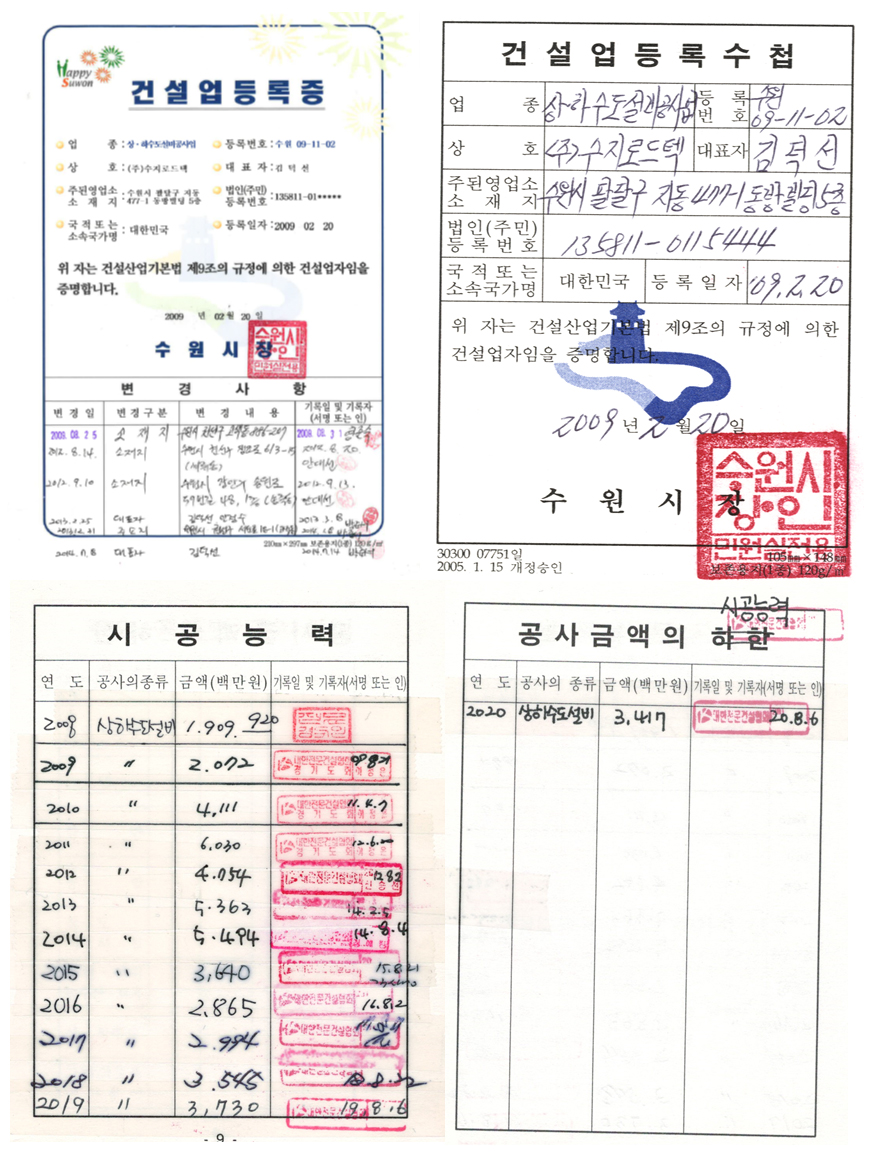 Happy
Suwon
건설업등록증
업 종 : 상·하수도설비공사업
등록번호 : 수원 09-11-02
상 호 : (주)수지로드텍
대 표 자 : 김 덕 선
주된영업소 소 재 지 : 수원시 팔달구 지동
477-1 동광빌딩 5층
법인(주민) 등록번호 : 135811-01*****
국 적 또 는 소속국가명 : 대한민국
등록일자 : 2009 02 20
위 자는 건설산업기본법 제9조의 규정에 의한 건설업자임을
증명합니다.
2009 년 02 월 20 일
수 원 시 장
변 경 사 항
변 경 일 변 경 구 분 변 경 내 용 기록일 및 기록자
(서명 또는 인)
2009. 08. 25 소 재 지
2012. 8. 14. 소재지
2012. 9. 10 소재지 2012. 9. 13.
2013. 2. 25 대표자 2013. 3. 8
대표자 김덕선
210㎜×297㎜ 보존용지(1종) 120g/㎡
건 설 업 등 록 수 첩
업 종 상·하수도설비공사업 등 록 번 호 수원 09-11-02
상 호 (주)수지로드텍 대표자 김덕선
주된영업소 소 재 지 수원시 팔달구 지동 477-1 동광빌딩 5층
법인(주민) 등 록 번 호 135811-0115444
국 적 또 는 소속국가명 대한민국 등 록 일 자 '09. 2. 20
위 자는 건설산업기본법 제9조의 규정에 의한
건설업자임을 증명합니다.
2009 년 2 월 20 일
수 원 시 장
수원시
장인
민원실전용
30300 07751일
2005. 1. 15 개정승인
105㎜×148㎜
보존용지(1종) 120g/㎡
시 공 능 력
연 도 공사의종류 금액(백만원) 기록일 및 기록자(서명 또는 인)
2008 상하수도설비 1.909. 920
2009 〃 2.072
2010 〃 4,111 11. 4. 7
2011 〃 6.030
2012 〃 4.054
2013 〃 5.363 14. 2. 5
2014 〃 5.494 14. 8. 4
2015 〃 3,640 15. 8. 21
2016 〃 2.865 16. 8. 2
2017 〃 2.994
2018 〃 3.545 18. 8. 22
2019 〃 3,730 19. 8. 6
- 9 -
시공능력
공 사 금 액 의 하 한
연 도 공사의 종류 금액(백만원) 기록일 및 기록자(서명 또는 인)
2020 상하수도설비 3,417 대한전문건설협회 20. 8. 6